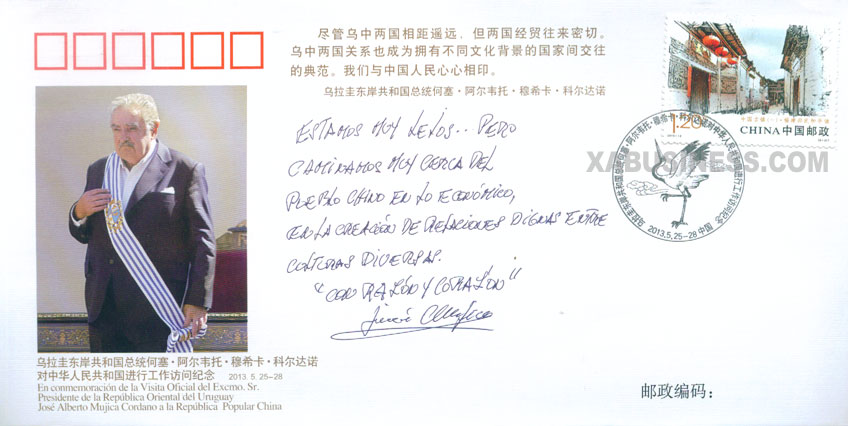 尽管乌中两国相距遥远，但两国经贸往来密切。
乌中两国关系也成为拥有不同文化背景的国家间交往
的典范。我们与中国人民心心相印。
乌拉圭东岸共和国总统何塞·阿尔韦托·穆希卡·科尔达诺
ESTAMOS MUY LEJOS.. PERO
CAMINAMOS MUY CERCA DEL
PUEBLO CHINO EN LO ECONÓMICO,
EN LA CREACIÓN DE RELACIONES DIGNAS ENTRE
CULTURAS DIVERSAS.
"CON RAZÓN Y CORAZÓN"
1.20
CHINA 中国邮政
XABUSINESS.COM
乌拉圭东岸共和国总统何塞·阿尔韦托·穆希卡·科尔达诺对中华人民共和国进行工作访问纪念
2013.5.25-28 中国
乌拉圭东岸共和国总统何塞·阿尔韦托·穆希卡·科尔达诺
对中华人民共和国进行工作访问纪念 2013.5.25-28
En conmemoración de la Visita Oficial del Excmo. Sr.
Presidente de la República Oriental del Uruguay
José Alberto Mujica Cordano a la República Popular China
邮政编码：